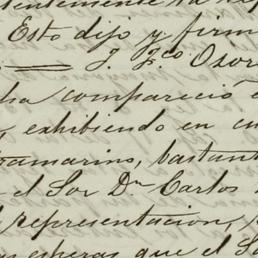 Esto dijo y firm
J. Fco Osor
ha compareció
exhibiendo en cu
tramarino, bastant
el Sor Dn Carlos
representacion,
esperas que el S